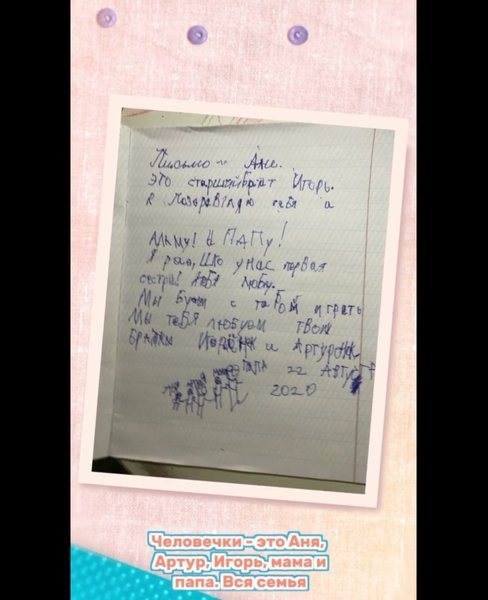 Письмо Ане.
Это старший брат Игорь.
Я поздравляю тебя и
маму! и ПАПу!
Я рад, што у нас первая
сестра! тебя люблу.
Мы будем с табой играть
Мы тебя любуем твои
братики и Артур
22 Август
2020
Человечки - это Аня,
Артур, Игорь, мама и
папа. Вся семья